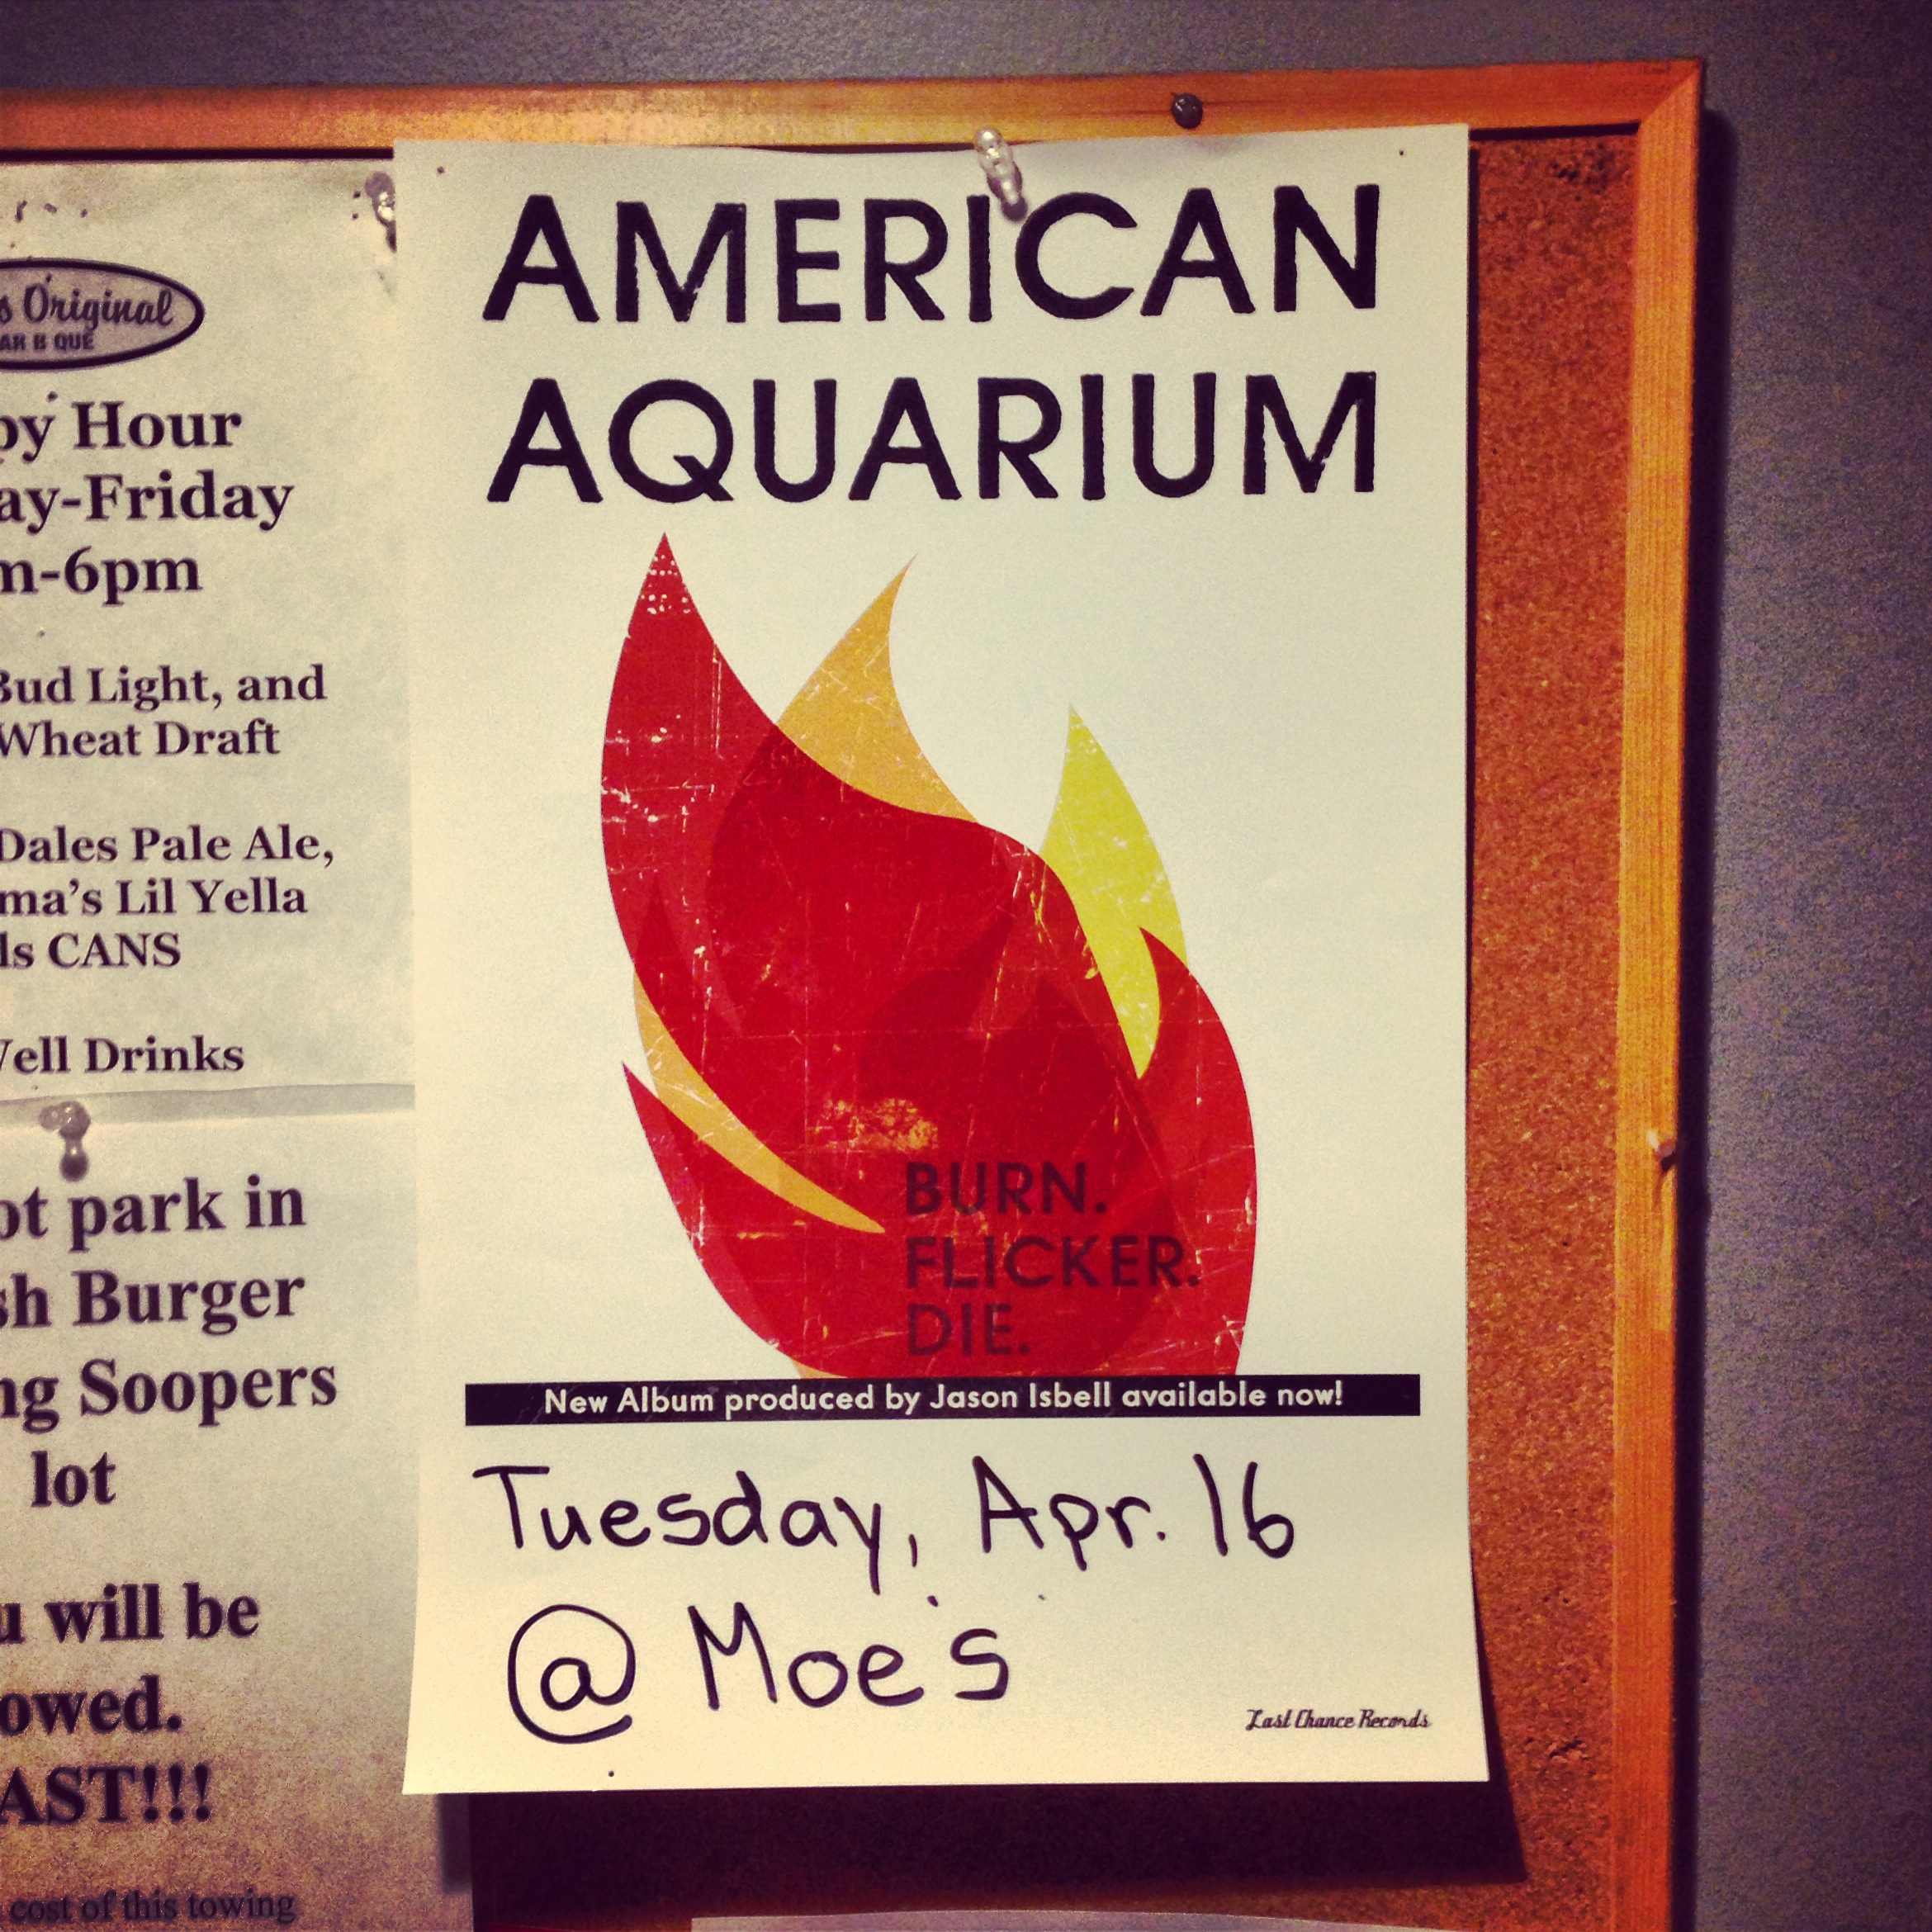 s Original
AR B QUE
py Hour
ay-Friday
m-6pm
Bud Light, and
Wheat Draft
Dales Pale Ale,
ma's Lil Yella
ls CANS
Well Drinks
ot park in
sh Burger
ng Soopers
lot
u will be
owed.
AST!!!
cost of this towing
AMERICAN
AQUARIUM
BURN.
FLICKER.
DIE.
New Album produced by Jason Isbell available now!
Tuesday, Apr. 16
@ Moe's
Last Chance Records